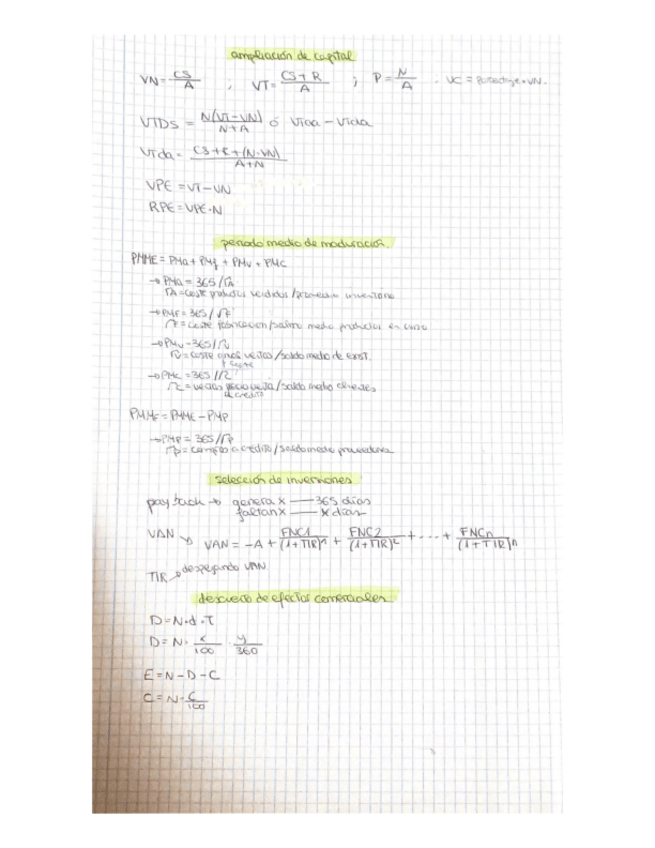 ampliación de capital
VN = CS/A ; VT = CS+R/A ; P = N/A . VC = Porcentaje · VN.
VTDS = N(VT-VN)/N+A ó Vtaa - Vtda
Vtda = CS+R+(N·VN)/A+N
VPE = VT-VN
RPE = VPE·N
periodo medio de maduración
PMME = PMa + PMf + PMv + PMc
→ PMa = 365/rA
rA = coste productos vendidos / promedio inventario
→ PMF = 365/rf
rF = coste fabricacion / saldo medio productos en curso
→ PMv = 365/rv
rv = coste ventas / saldo medio de exist.
→ PMc = 365/rc
rc = ventas precio venta / saldo medio clientes
a credito
PMMF = PMME - PMP
→ PMP = 365/rp
rp = compras a crédito / saldo medio proveedores
selección de inversiones
payback → genera x — 365 días
faltan x — x días
VAN → VAN = -A + FNC1/(1+TIR)^1 + FNC2/(1+TIR)^2 + ... + FNCn/(1+TIR)^n
TIR → despejando VAN
descuento de efectos comerciales
D = N·d·T
D = N · x/100 · y/360
E = N-D-C
C = N · C/100